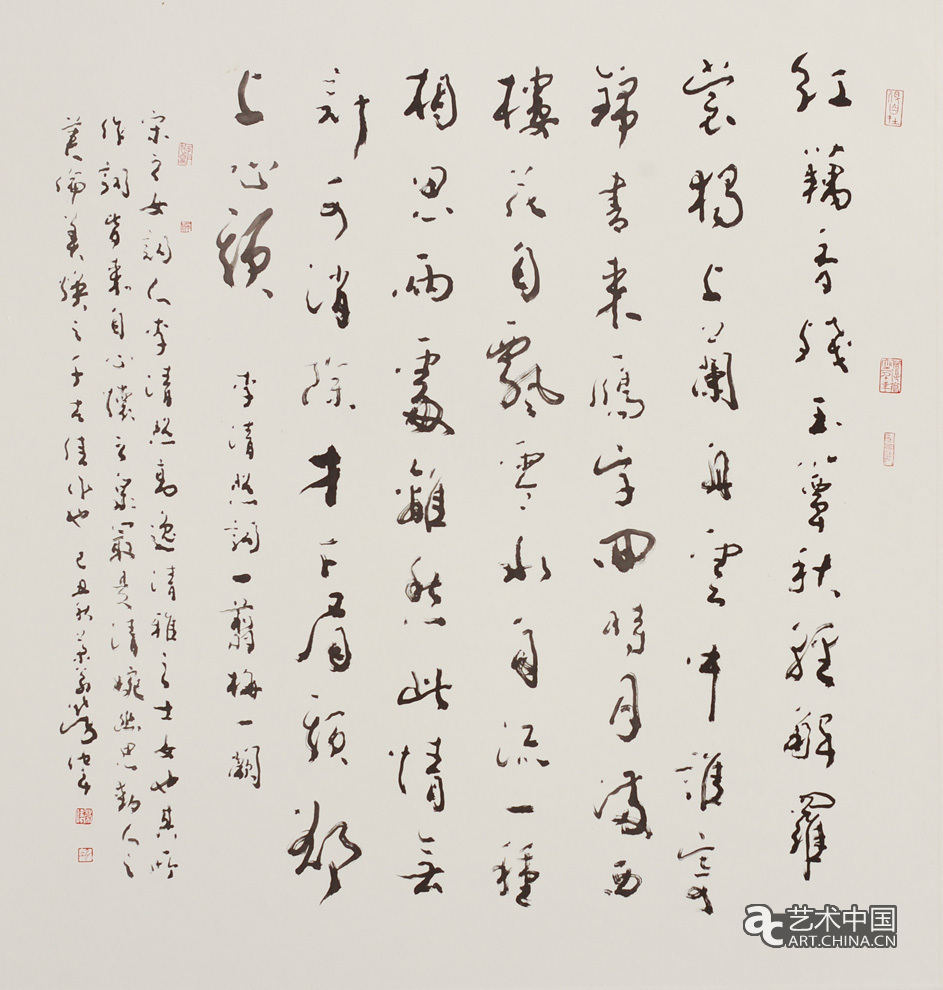 紅藕香殘玉簟秋輕解羅
裳獨上蘭舟雲中誰寄
錦書來鴈字回時月滿西
樓花自飄零水自流一種
相思兩處離愁此情無
計可消除才下眉頭却
上心頭 李清照詞一翦梅一闋
宋之女詞人李清照高逸清雅之士女也其所
作詞皆来自心懷之泉最是清婉幽思動人之
美倫美煥之千古佳作也 己丑秋
ac 艺术中国
ART.CHINA.CN